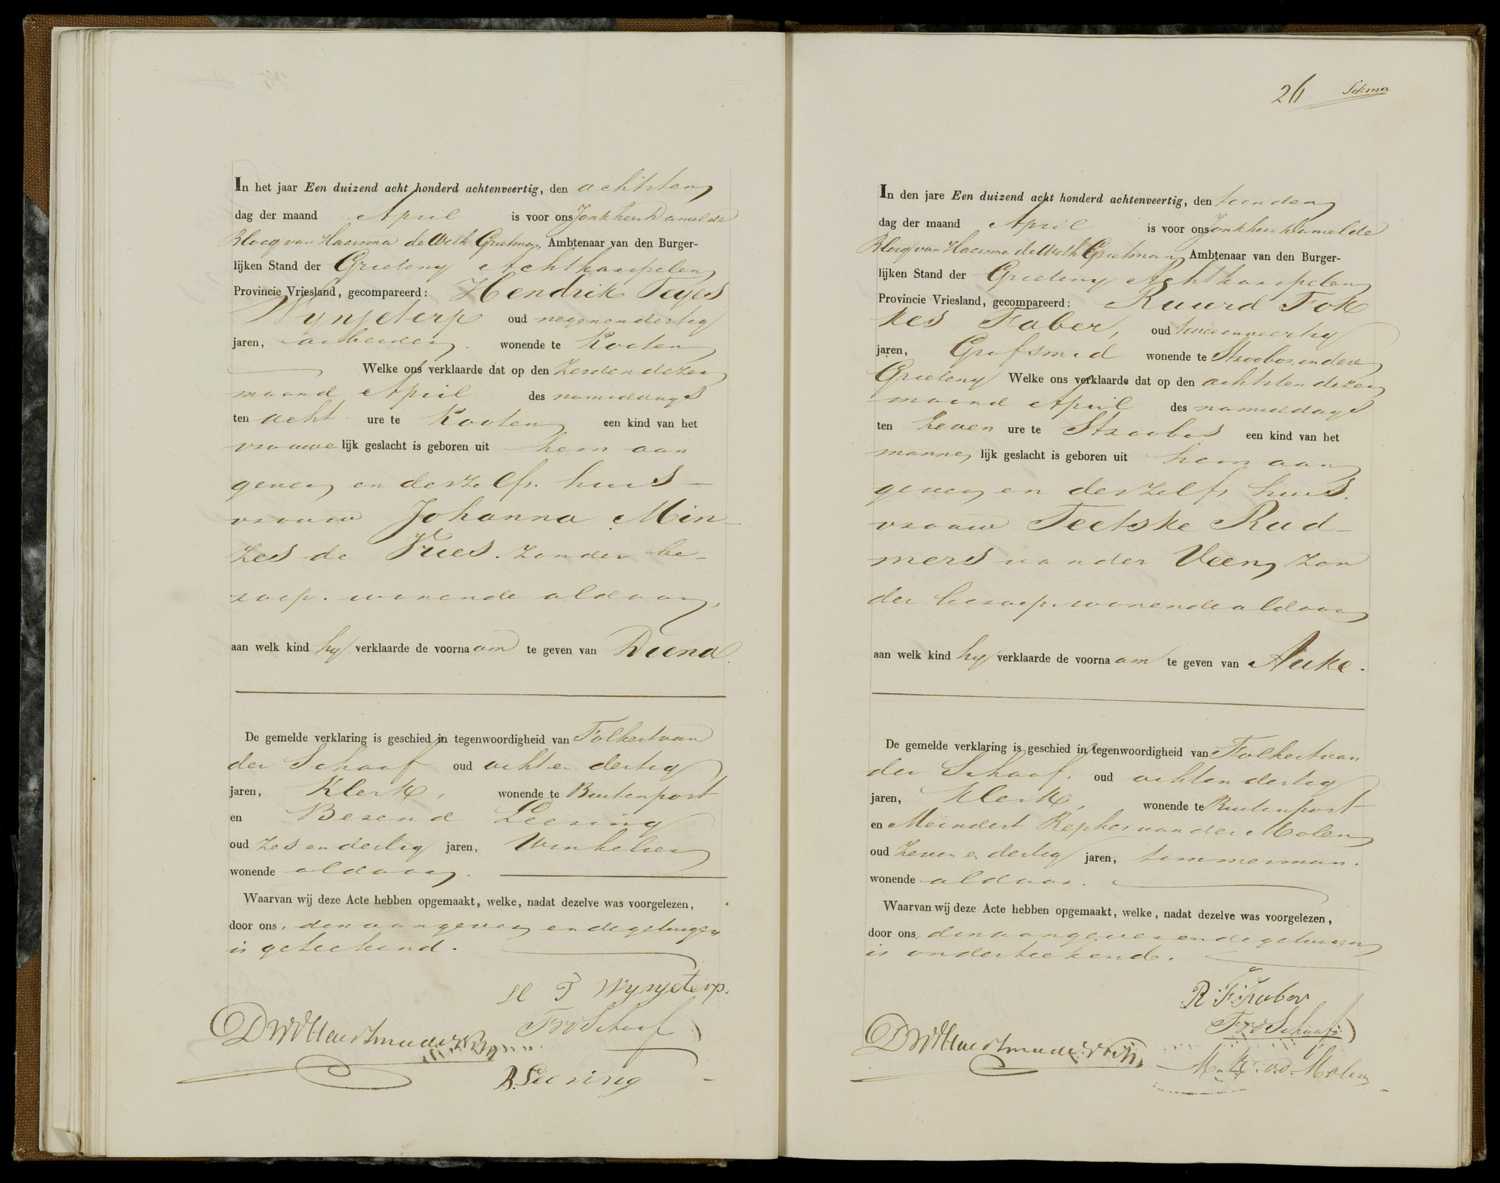 In het jaar Een duizend acht honderd achtenveertig, den achtsten
dag der maand April is voor ons Jonkheer Hamelde
Bloeg van Haersma de With Grietman, Ambtenaar van den Burger-
lijken Stand der Grieteny Achtkarspelen
Provincie Vriesland, gecompareerd: Hendrik Teyes
Wynjeterp oud negenendertig
jaren, arbeider, wonende te Kooten
Welke ons verklaarde dat op den zesden dezer
maand April des namiddags
ten acht ure te Kooten een kind van het
vrouwelijk geslacht is geboren uit hem aan
gever en deszelfs huis-
vrouw Johanna Min-
zes de Vries. zonder be-
roep. wonende aldaar,
aan welk kind hy verklaarde de voornaam te geven van Diena.
De gemelde verklaring is geschied in tegenwoordigheid van Folkert van
der Schaaf oud achtendertig
jaren, Klerk, wonende te Buitenpost
en Berend Liesing
oud zesendertig jaren, Winkelier
wonende aldaar.
Waarvan wij deze Acte hebben opgemaakt, welke, nadat dezelve was voorgelezen,
door ons, den aangever en de getuigen
is geteekend.
H T Wynjeterp.
F v d Schaaf
26
In den jare Een duizend acht honderd achtenveertig, den tienden
dag der maand April is voor ons Jonkheer Hamelde
Bloeg van Haersma de With Grietman, Ambtenaar van den Burger-
lijken Stand der Grieteny Achtkarspelen
Provincie Vriesland, gecompareerd: Ruurd Fok
kes Faber, oud tweeenveertig
jaren, Grofsmid wonende te Stroobos in deze
Grieteny Welke ons verklaarde dat op den achtsten dezer
maand April des namiddags
ten zeven ure te Stroobos een kind van het
mannelijk geslacht is geboren uit hem aan
gever en deszelfs huis.
vrouw Teetske Rud-
mers van der Veen, zon
der beroep. wonende aldaar
aan welk kind hy verklaarde de voornaam te geven van Auke.
De gemelde verklaring is geschied in tegenwoordigheid van Folkert van
der Schaaf, oud achtendertig
jaren, Klerk, wonende te Buitenpost
en Meindert van der Molen
oud zevenendertig jaren, timmerman.
wonende aldaar.
Waarvan wij deze Acte hebben opgemaakt, welke, nadat dezelve was voorgelezen,
door ons, den aangever en de getuigen
is onderteekend.
R. F. Faber
F v d Schaaf
M. K. v. d. Molen